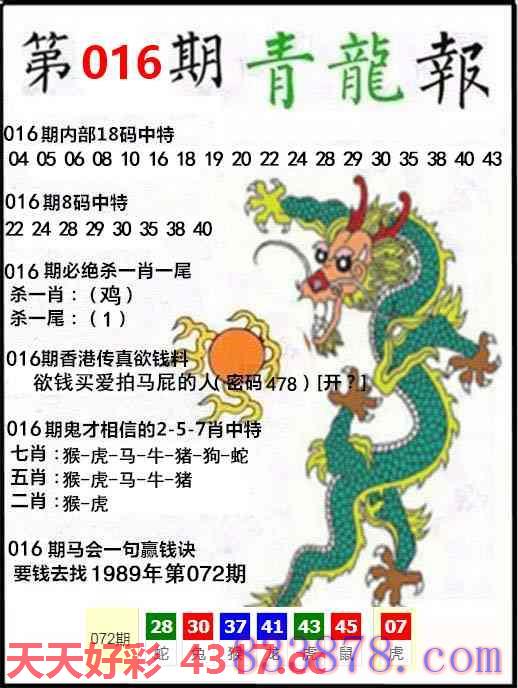 第016期青龍報
016期内部18码中特
04 05 06 08 10 16 18 19 20 22 24 28 29 30 35 38 40 43
016期8码中特
22 24 28 29 30 35 38 40
016期必绝杀一肖一尾
杀一肖:(鸡)
杀一尾:(1)
016期香港传真欲钱料
欲钱买爱拍马屁的人(密码478)[开?]
016期鬼才相信的2-5-7肖中特
七肖:猴-虎-马-牛-猪-狗-蛇
五肖:猴-虎-马-牛-猪
二肖:猴-虎
016期马会一句赢钱诀
要钱去找1989年第072期
072期 28 30 37 41 43 45 07
蛇 兔 猴 龙 虎 鼠 虎
天天好彩 4387.cc